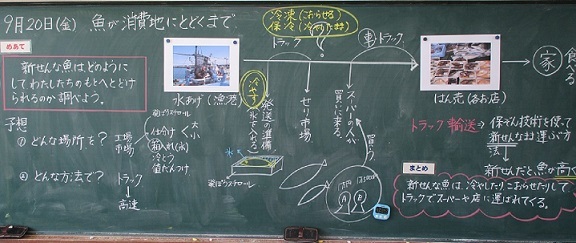 9月20日(金) 魚が消費地にとどくまで
めあて
新せんな魚はどのように
してわたしたちのもとへとどけ
られるのか調べよう。
予想
①どんな場所を?
工場
市場
②どんな方法で?
トラック
高速
水あげ(漁港)
仕分け
大
小
箱づめ(氷)
冷とう
値だんつけ
発ぽうスチロール
冷やす
発送準備
氷を入れる
氷
発ぽうスチロール
冷凍(こおらせる)
保冷(冷やしたまま)
トラック
せり
市場
スーパーの人が
買いに来る。
買う
A
B
車
トラック
はん売(各お店)
家
食べる
トラック輸送
保ぞん技術を使って
新せんなまま運ぶ方法
新せんだと魚が高く
まとめ
新せんな魚は、冷やしたりこおらせたりして
トラックでスーパーや店に運ばれてくる。